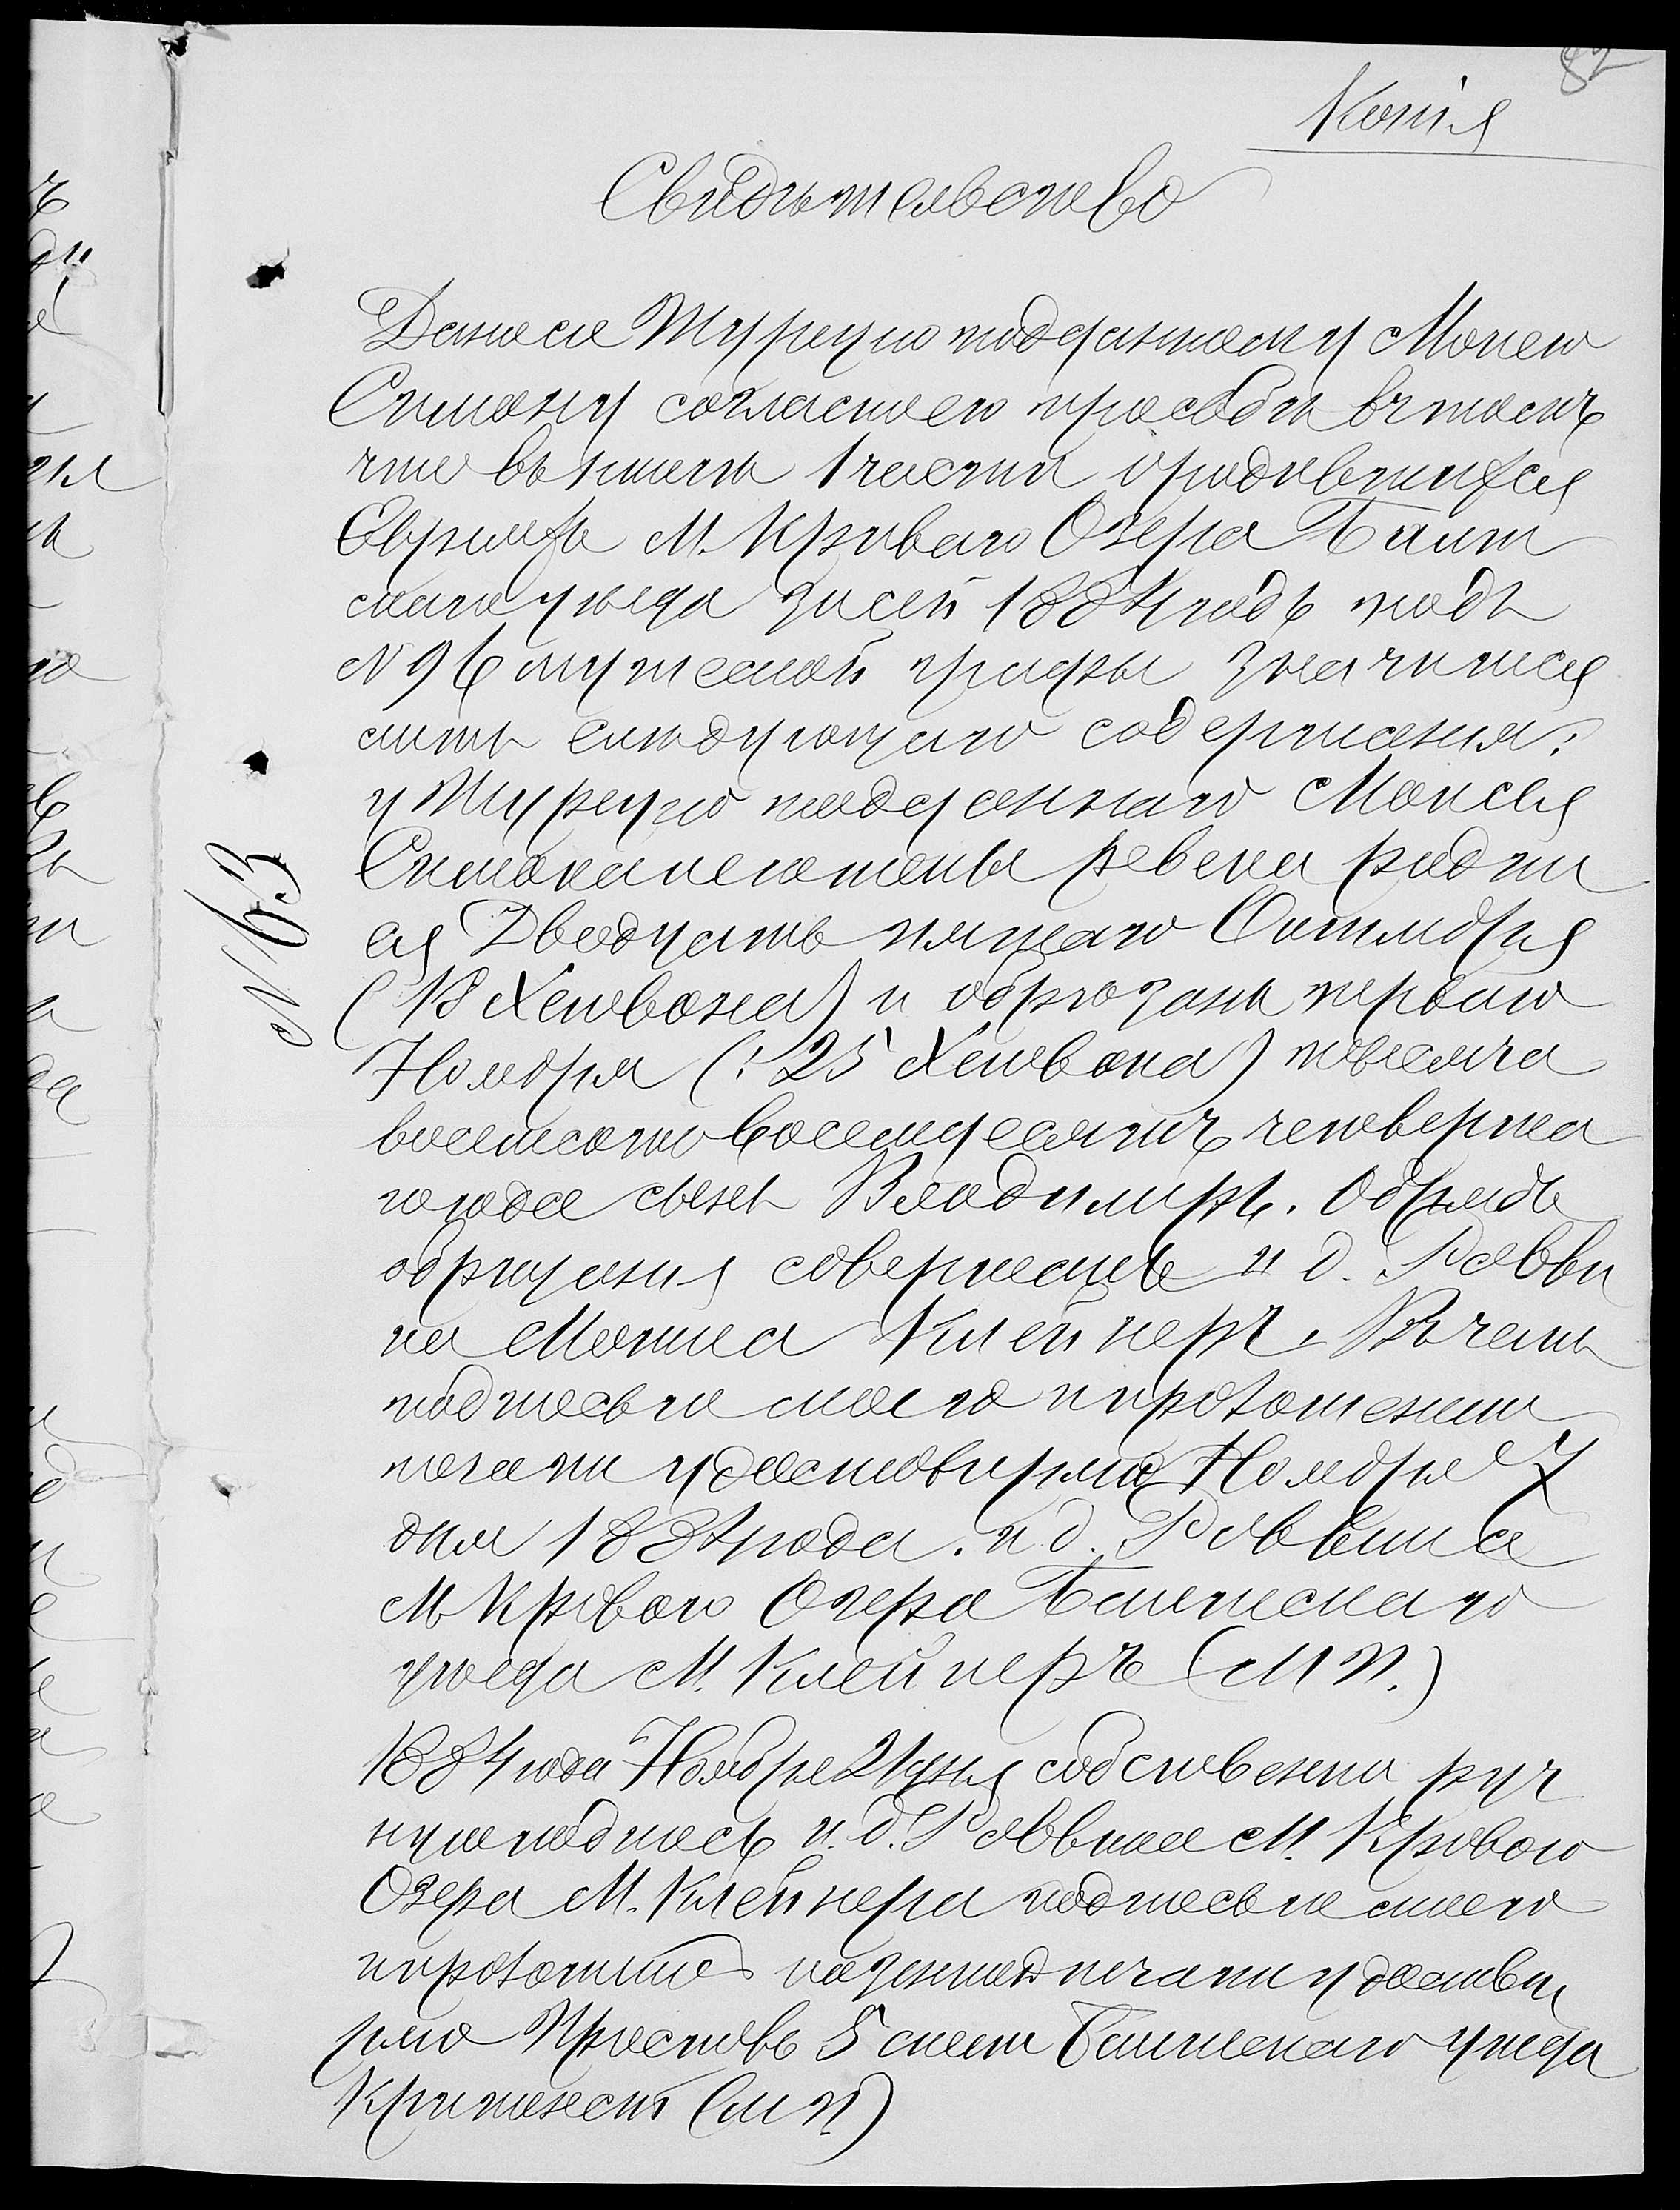 82
Копія
Свидѣтельство
Дано сие Турецко подданному Моисею
Симону согласно его просьбы въ томъ
что въ книгѣ 1 части о родившихся
Евреяхъ М. Криваго Озера Балт
скаго уѣзда за сей 1884 годъ подъ
N 96 мужеской графы значится
актъ слѣдующаго содержания:
у Турецко подданнаго Моисея
Симона и его жены Ревеки родил
ся Двадцать пятаго Октября
(18 Хешвона) и обрѣзанъ перваго
Ноября (: 25 Хешвона) тысяча
восемьсотъ восемьдесятъ четверта
го года сынъ Владимиръ. Обрядъ
обрѣзания совершалъ и д. Равви
на Мошка Клейнеръ. Въ чемъ
подписью моею и приложениемъ
печати удостовѣряю Ноября 7
дня 1884 года. и д. Раввина
М Криваго Озера Балтскаго
уѣзда М. Клейнеръ (М П.)
1884 года Ноября 21 дня собственно руч
ную подпись и. д. Раввина М. Криваго
Озера М. Клейнера подписью моею
и приложениемъ казенной печати удостовѣ
ряю Приставъ 5 стана Балтскаго уѣзда
(М П)
N 63